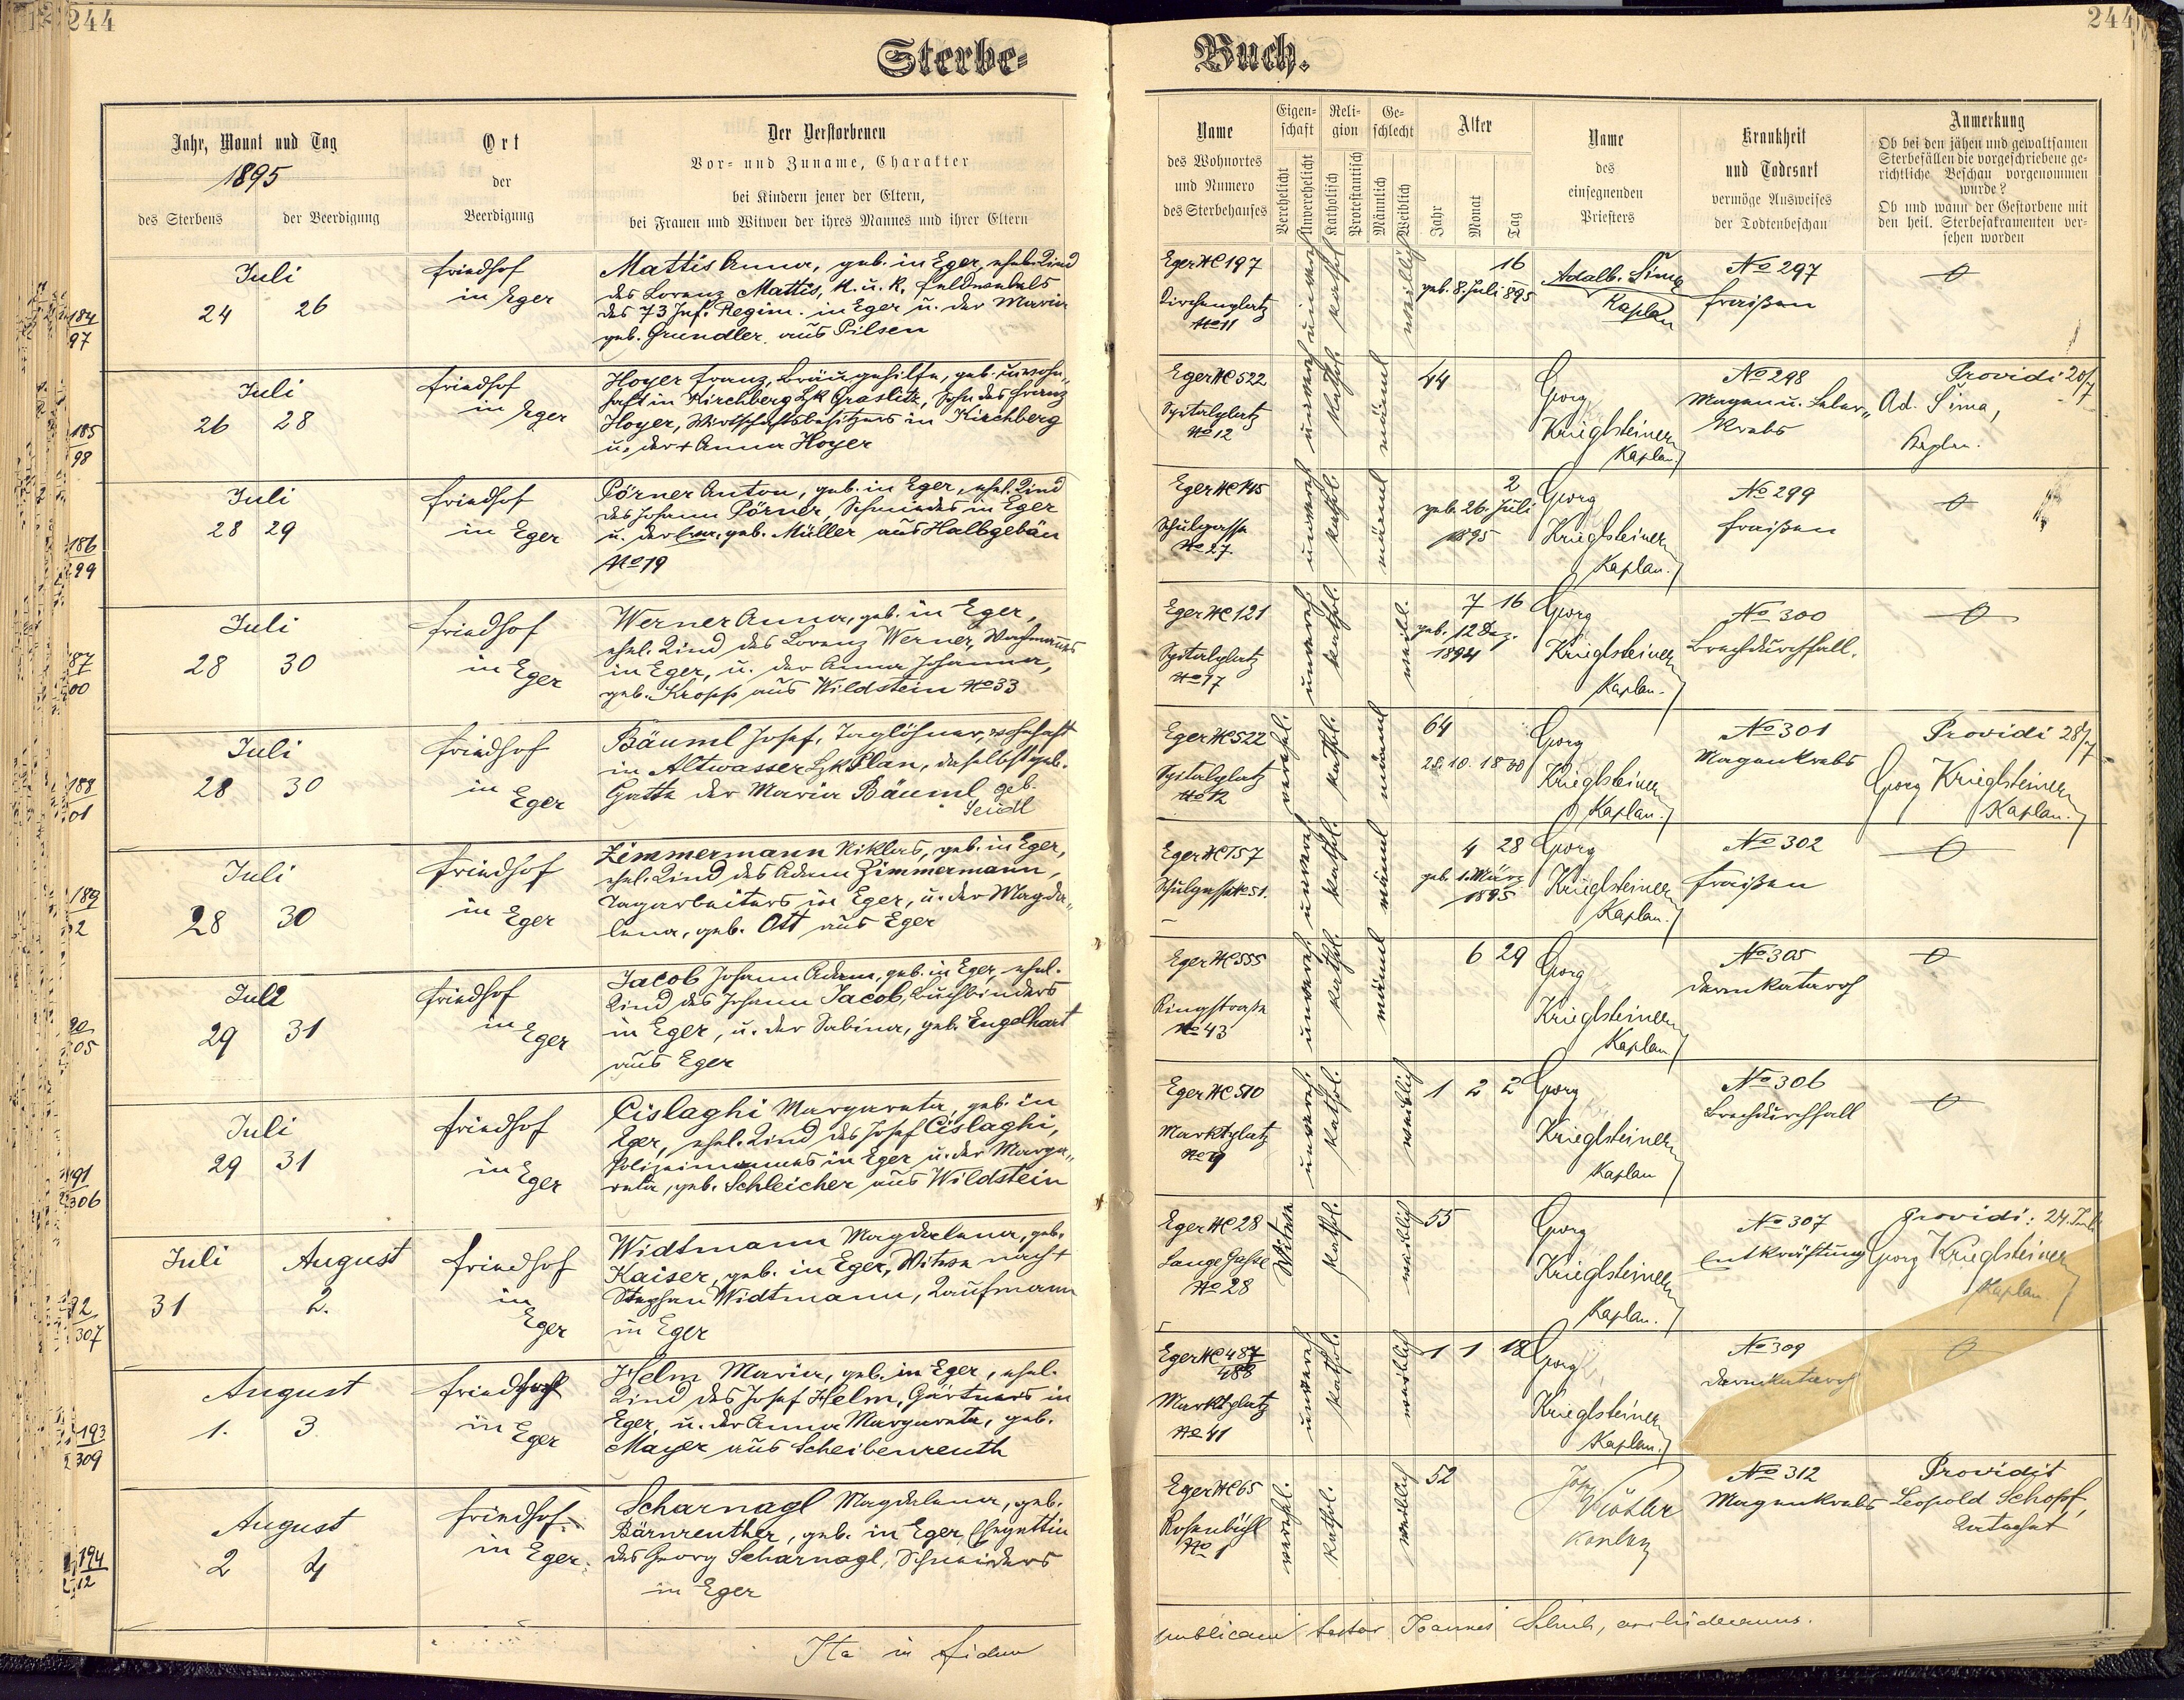 244
Sterbe-
Jahr, Monat und Tag
1895
des Sterbens
der Beerdigung
Ort
der
Beerdigung
Der Verstorbenen
Vor- und Zuname, Charakter
bei Kindern jener der Eltern,
bei Frauen und Witwen der ihres Mannes und ihrer Eltern
184
97
Juli
24 26
Friedhof
in Eger
Mattis Anna, geb. in Eger, ehel. Kind
des Lorenz Mattis, k. u. k. Feldwebels
des 73 Inf. Regim. in Eger u. der Maria
geb. Grundler aus Pilsen
185
98
Juli
26 28
Friedhof
in Eger
Hoyer Franz, Bräugehilfe, geb. u. wohn„
haft in Kirchberg Bzk Graslitz, Sohn des Franz
Hoyer, Wirtschaftsbesitzers in Kirchberg
u. der + Anna Hoyer
186
299
Juli
28 29
Friedhof
in Eger
Pörner Anton, geb. in Eger, ehel. Kind
des Johann Pörner, Schmiedes in Eger
u. der geb. Müller aus Halbgebäu
No 19
87
00
Juli
28 30
Friedhof
in Eger
Werner Anna, geb. in Eger,
ehel. Kind des Lorenz Werner, Wachmannes
in Eger, u. der Anna Johanna,
geb. Kropf aus Wildstein No 33
188
01
Juli
28 30
Friedhof
in Eger
Bäuml Josef, Taglöhner, wohnhaft
in Altwasser Bzk Plan, daselbst geb.
Gatte der Maria Bäuml geb.
Seidl
189
2
Juli
28 30
Friedhof
in Eger
Zimmermann Niklas, geb. in Eger,
ehel. Kind des Adam Zimmermann,
Tagarbeiters in Eger, u. der Magda„
lena, geb. Ott aus Eger
90
05
Juli
29 31
Friedhof
in Eger
Jacob Johann Adam, geb. in Eger, ehel.
Kind des Johann Jacob, Buchbinders
in Eger, u. der Sabina, geb. Engelhart
aus Eger
91
306
Juli
29 31
Friedhof
in Eger
Cislaghi Margareta, geb. in
Eger, ehel. Kind des Josef Cislaghi,
Polizeimannes in Eger u. der Marga„
reta, geb. Schleicher aus Wildstein
92
307
Juli August
31 2.
Friedhof
in
Eger
Widtmann Magdalena, geb.
Kaiser, geb. in Eger, Witwe nach +
Stephan Widtmann, Kaufmann
in Eger
193
309
August
1. 3
Friedhof
in Eger
Helm Maria, geb. in Eger, ehel.
Kind des Josef Helm, Gärtners in
Eger u. der Anna Margareta, geb.
Mayer aus Scheibenreuth
194
312
August
2 4
Friedhof
in Eger.
Scharnagl Magdalena, geb.
Bärnreuther, geb. in Eger, Ehegattin
des Georg Scharnagl, Schneiders
in Eger
Ita in fidem
244
Buch.
Name
des Wohnortes
und Numero
des Sterbehauses
Eigen-
schaft
Verehelicht
Unverehelicht
Reli-
gion
Katholisch
Protestantisch
Ge-
schlecht
Männlich
Weiblich
Alter
Jahr
Monat
Tag
Name
des
einsegnenden
Priesters
Krankheit
und Todesart
vermöge Ausweises
der Todtenbeschau
Anmerkung
Ob bei den jähen und gewaltsamen
Sterbefällen die vorgeschriebene ge-
richtliche Beschau vorgenommen
wurde?
Ob und wann der Gestorbene mit
den heil. Sterbesakramenten ver-
sehen worden
Eger NC 197
Kirchenplatz
No 11
unvereh
kathol
weiblich
16
geb. 8. Juli 895
Adalb. Šíma
Kaplan
No 297
Fraißen
0
Eger NC 522
Spitalplatz
No 12
unvereh
kathol.
männl
44
Georg
Krieglsteiner
Kaplan.
No 298
Magen u. Leber„
Krebs
Providi 20/7
Ad. Šíma,
Kaplan.
Eger NC 145
Schulgasse
No 27.
unvereh
kathol.
männl
2
geb. 26. Juli
1895
Georg
Krieglsteiner
Kaplan.
No 299
Fraißen
0
Eger NC 121
Spitalplatz
No 17
unvereh.
kathol.
weibl.
7 16
geb. 12 Dez.
1894
Georg
Krieglsteiner
Kaplan.
No 300
Brechdurchfall.
0
Eger NC 522
Spitalplatz
No 12
verehel.
kathol.
männl
64
28. 10. 1830
Georg
Krieglsteiner
Kaplan.
No 301
Magenkrebs
Providi 28/7
Georg Krieglsteiner
Kaplan.
Eger NC 157
Schulgasse No 51.
unvereh
kathol.
männl
4 28
geb. 1. März
1895
Georg
Krieglsteiner
Kaplan.
No 302
Fraißen
0
Eger NC 555
Ringstraße
No 43
unvereh.
kathol.
männl
6 29
Georg
Krieglsteiner
Kaplan
No 305
Darmkatarrh
0
Eger NC 510
Marktplatz
No 9
unvereh.
kathol.
weiblich
1 2 2
Georg
Krieglsteiner
Kaplan
No 306
Brechdurchfall
0
Eger NC 28
Lange Gasse
No 28
Witwe
kathol.
weiblich
55
Georg
Krieglsteiner
Kaplan.
No 307
Entkräftung
Providi: 24. Juli
Georg Krieglsteiner
Kaplan.
Eger NC 487
488
Marktplatz
No 41
unvereh
kathol.
weiblich
1 1 12
Georg
Krieglsteiner
Kaplan.
No 309
Darmkatarrh
0
Eger NC 65
Rosenbühl
No 1
verehel.
kathol.
weiblich
52
Kaplan
No 312
Magenkrebs
Providit
Leopold Schopf,
Katechet
publicam testor Joannes